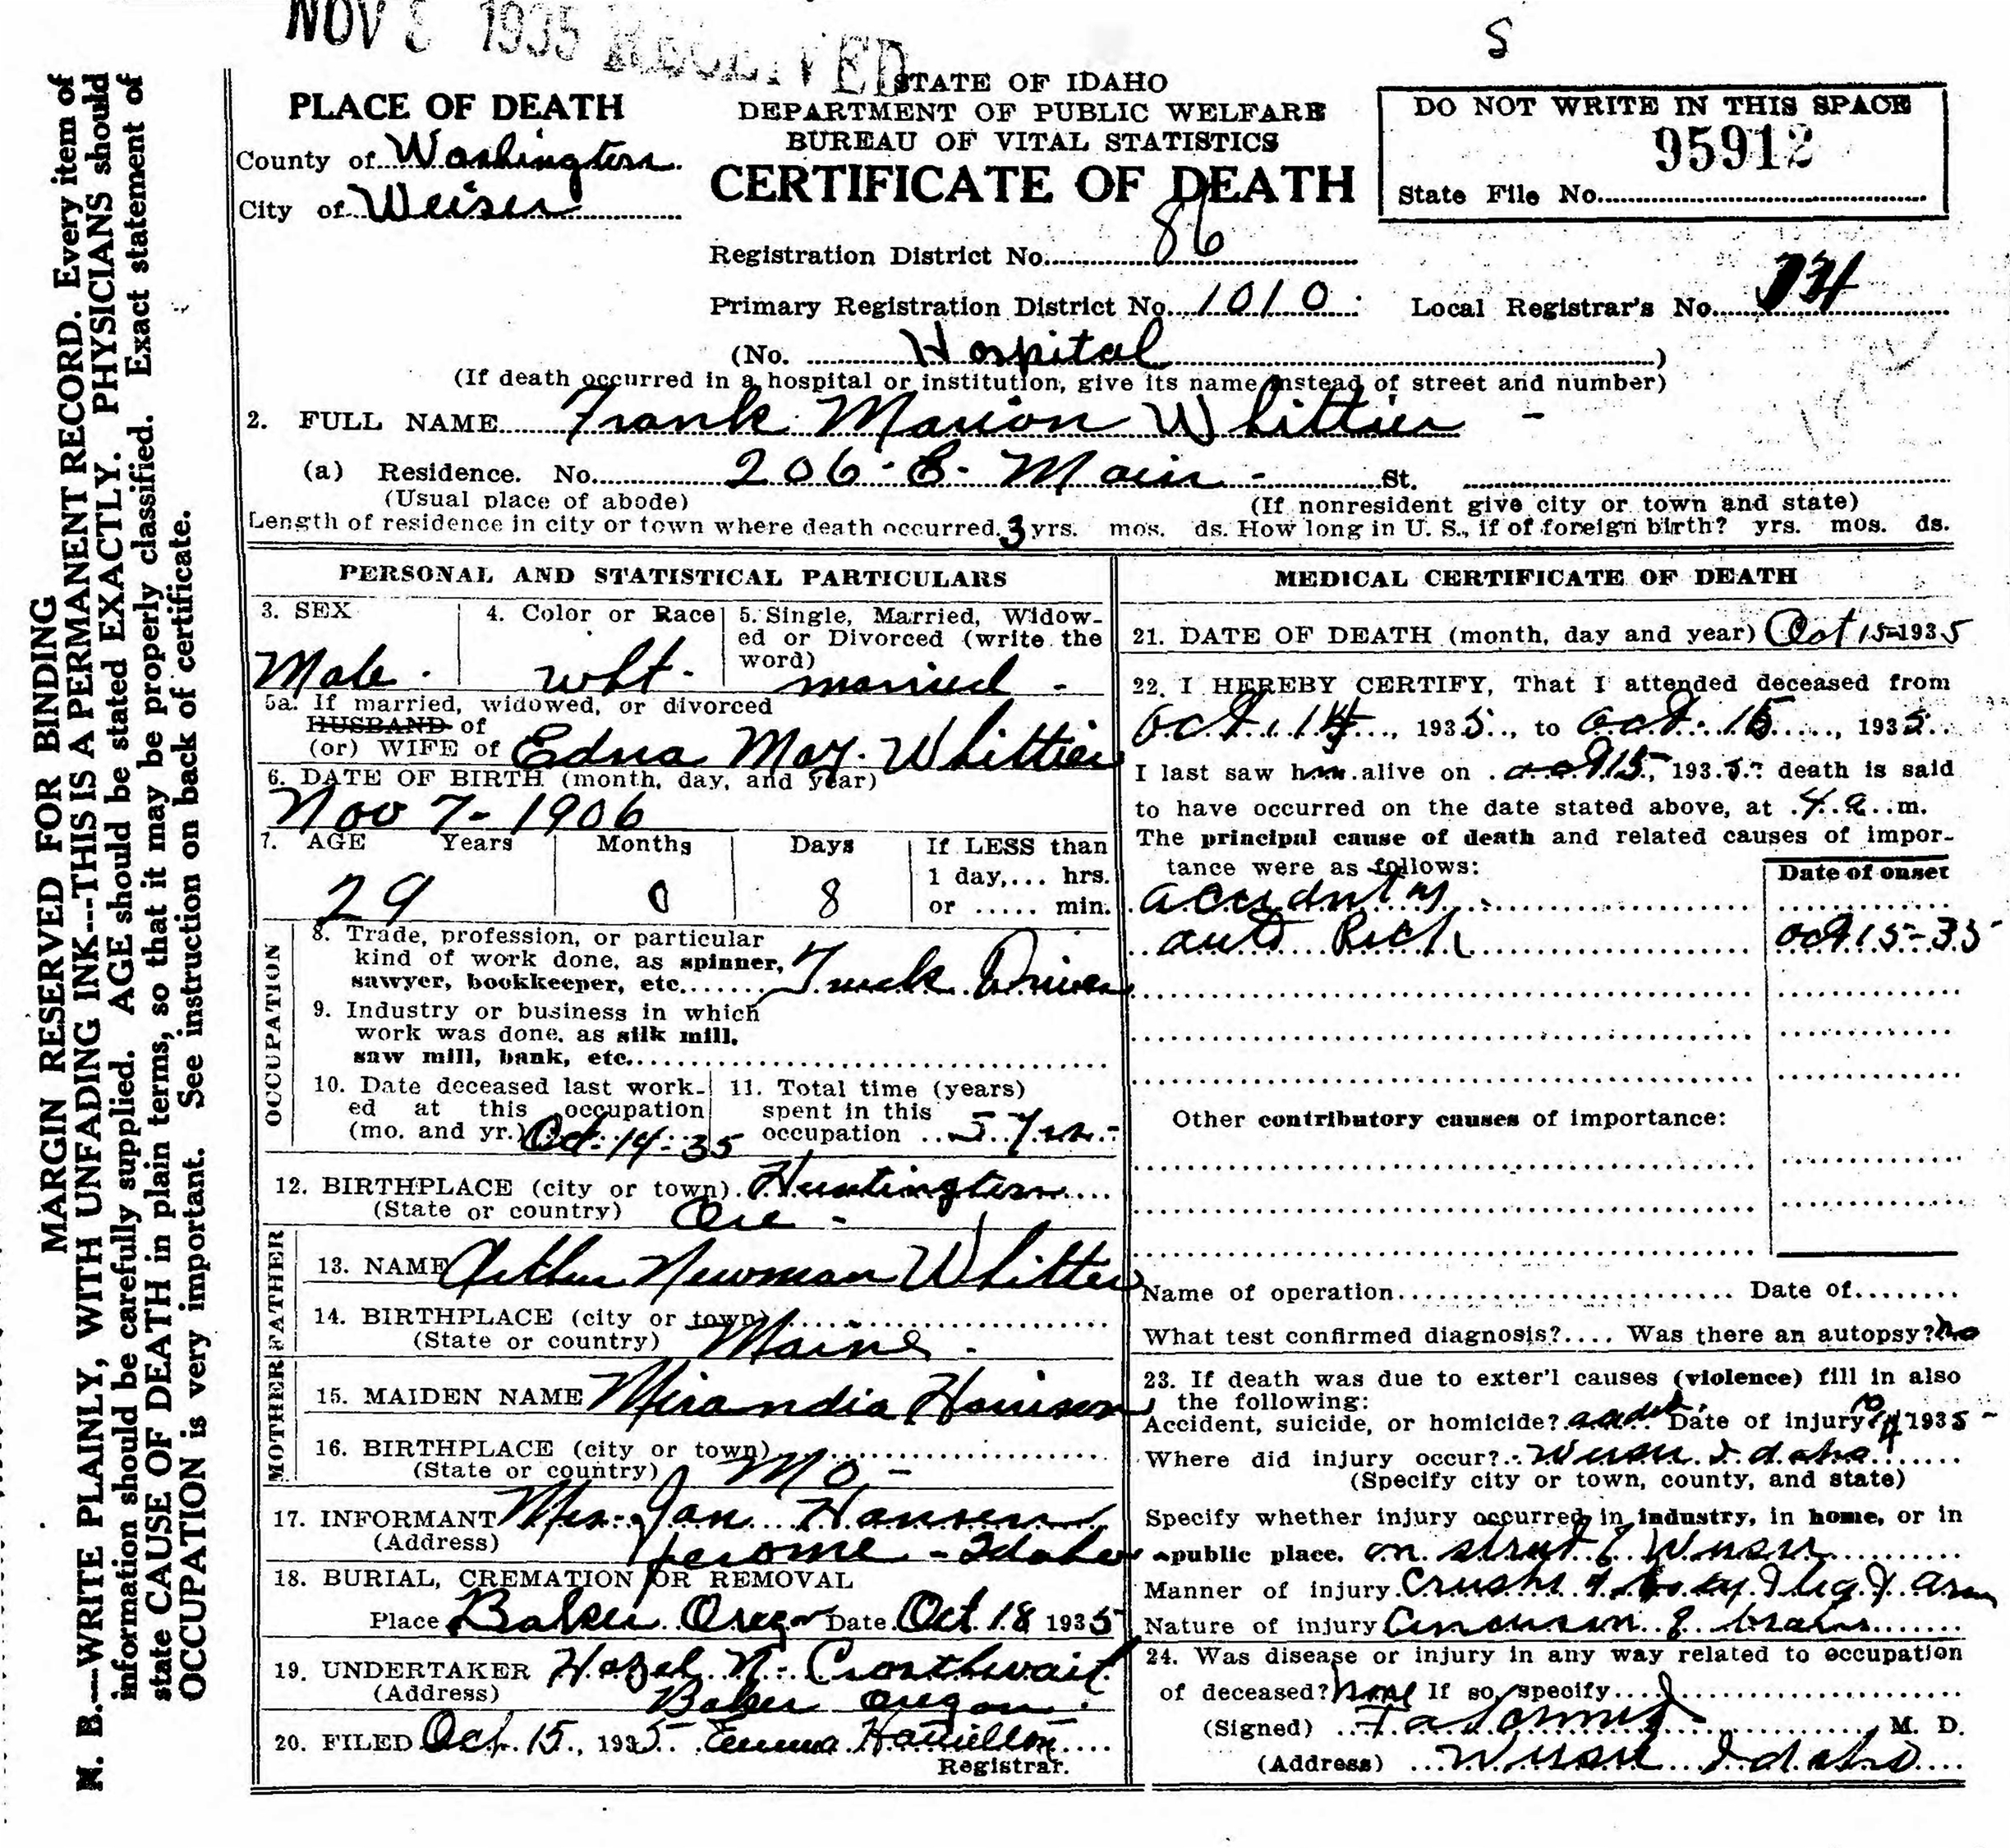 NOV 5 1935 RECEIVED
S
STATE OF IDAHO
DEPARTMENT OF PUBLIC WELFARE
BUREAU OF VITAL STATISTICS
CERTIFICATE OF DEATH
PLACE OF DEATH
County of Washington
City of Weiser
DO NOT WRITE IN THIS SPACE
95912
State File No.
Registration District No. 86
Primary Registration District No. 1010 Local Registrar's No.
(No. Hospital )
(If death occurred in a hospital or institution, give its name instead of street and number)
2. FULL NAME Frank Marion Whittier -
(a) Residence. No. 206 - E - Main - St.
(Usual place of abode) (If nonresident give city or town and state)
Length of residence in city or town where death occurred 3 yrs. mos. ds. How long in U. S., if of foreign birth? yrs. mos. ds.
PERSONAL AND STATISTICAL PARTICULARS
3. SEX
Male
4. Color or Race
wht.
5. Single, Married, Widow-
ed or Divorced (write the
word)
married -
5a. If married, widowed, or divorced
HUSBAND of
(or) WIFE of Edna May Whittier
6. DATE OF BIRTH (month, day, and year)
Nov 7 - 1906
7. AGE Years Months Days If LESS than
1 day,... hrs.
or ..... min.
29 0 8
OCCUPATION
8. Trade, profession, or particular
kind of work done, as spinner,
sawyer, bookkeeper, etc. Truck Driver
9. Industry or business in which
work was done, as silk mill,
saw mill, bank, etc.
10. Date deceased last work-
ed at this occupation
(mo. and yr.) Oct - 14 - 35
11. Total time (years)
spent in this
occupation 5 yrs. -
12. BIRTHPLACE (city or town) Huntington
(State or country) Ore -
FATHER
13. NAME Arthur Newman Whittier
14. BIRTHPLACE (city or town)
(State or country) Maine -
MOTHER
15. MAIDEN NAME Mirandia Harrison
16. BIRTHPLACE (city or town)
(State or country) Mo -
17. INFORMANT Mrs. Jan Hansen
(Address) Jerome - Idaho
18. BURIAL, CREMATION OR REMOVAL
Place Baker Oregon Date Oct. 18 1935
19. UNDERTAKER Hazel N. Crosthwait
(Address) Baker Oregon
20. FILED Oct. 15, 1935 Emma Hamilton
Registrar.
MEDICAL CERTIFICATE OF DEATH
21. DATE OF DEATH (month, day and year) Oct 15 - 1935
22. I HEREBY CERTIFY, That I attended deceased from
Oct. 14, 1935, to Oct. 15, 1935
I last saw him alive on Oct 15, 1935; death is said
to have occurred on the date stated above, at 4 a. m.
The principal cause of death and related causes of impor-
tance were as follows:
Date of onset
accidental
auto Oct 15 - 35
Other contributory causes of importance:
Name of operation Date of
What test confirmed diagnosis? Was there an autopsy? No
23. If death was due to exter'l causes (violence) fill in also
the following:
Accident, suicide, or homicide? Date of injury 1935 -
Where did injury occur? Weiser Idaho
(Specify city or town, county, and state)
Specify whether injury occurred in industry, in home, or in
public place. on street of Weiser
Manner of injury Crushed body & leg & arm
Nature of injury Concussion of brain
24. Was disease or injury in any way related to occupation
of deceased? None If so, specify
(Signed) M. D.
(Address) Weiser Idaho
MARGIN RESERVED FOR BINDING
N. B.—WRITE PLAINLY, WITH UNFADING INK---THIS IS A PERMANENT RECORD. Every item of
information should be carefully supplied. AGE should be stated EXACTLY. PHYSICIANS should
state CAUSE OF DEATH in plain terms, so that it may be properly classified. Exact statement of
OCCUPATION is very important. See instruction on back of certificate.